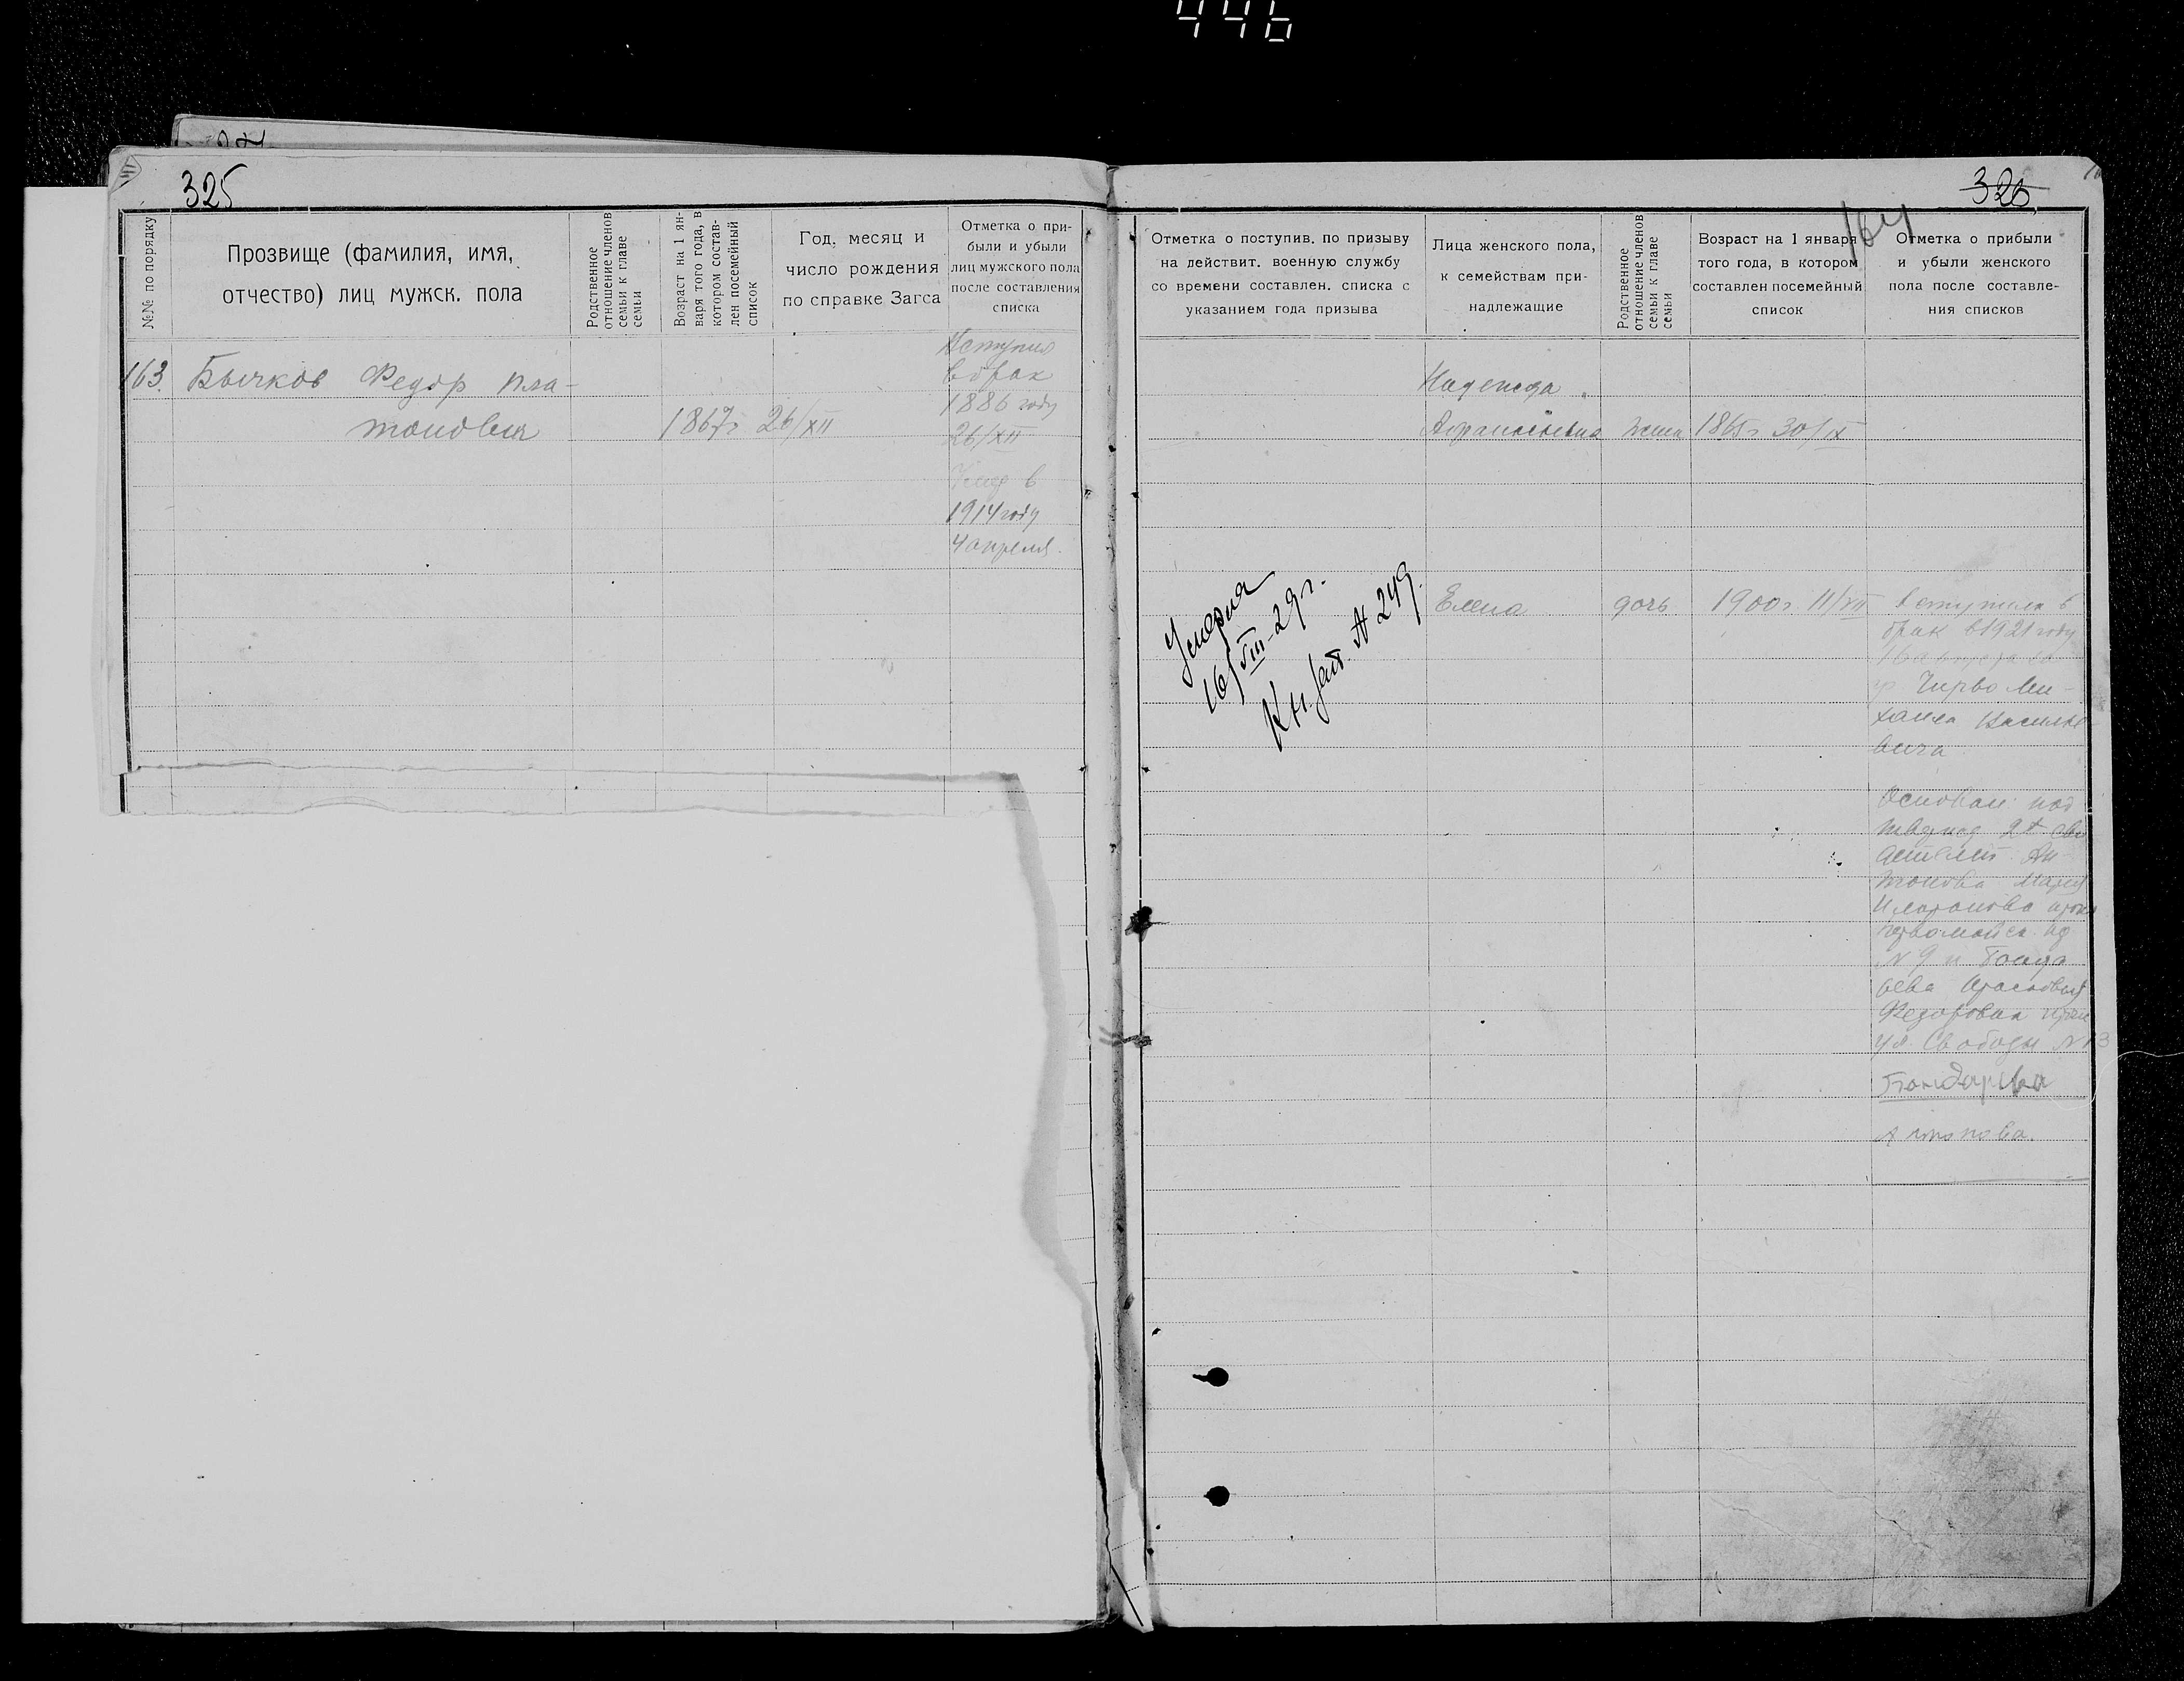 446
325
№№ по порядку
Прозвище (фамилия, имя,
отчество) лиц мужск. пола
Родственное
отношение членов
семьи к главе
семьи
Возраст на 1 ян-
варя того года, в
котором состав-
лен посемейный
список
Год, месяц и
число рождения
по справке Загса
Отметка о при-
были и убыли
лиц мужского пола
после составления
списка
163. Бычков Федор Пла-
тонович 1867г 26/XII
Вступил
в брак
1886 году
26/XII
Умер в
1914 году
4 апреля.
326
164
Отметка о поступив. по призыву
на действит. военную службу
со времени составлен. списка с
указанием года призыва
Лица женского пола,
к семействам при-
надлежащие
Родственное
отношение членов
семьи к главе
семьи
Возраст на 1 января
того года, в котором
составлен посемейный
список
Отметка о прибыли
и убыли женского
пола после составле-
ния списков
Надежда
жена 1865г 30/IX
Умерла
16/VIII-29 г.
Кн. № 249.
Елена дочь 1900г 11/XII
Вступила в
брак в 1921 году
16
гр. Чирво Ми-
хаила Василье
вича
Основан. под
2х сви
Ан
тонова Мария
первомайск.
№ 9 и Бонда
рева
Федоровна
ул. Свободы № 13
Бондарева
Антонова.